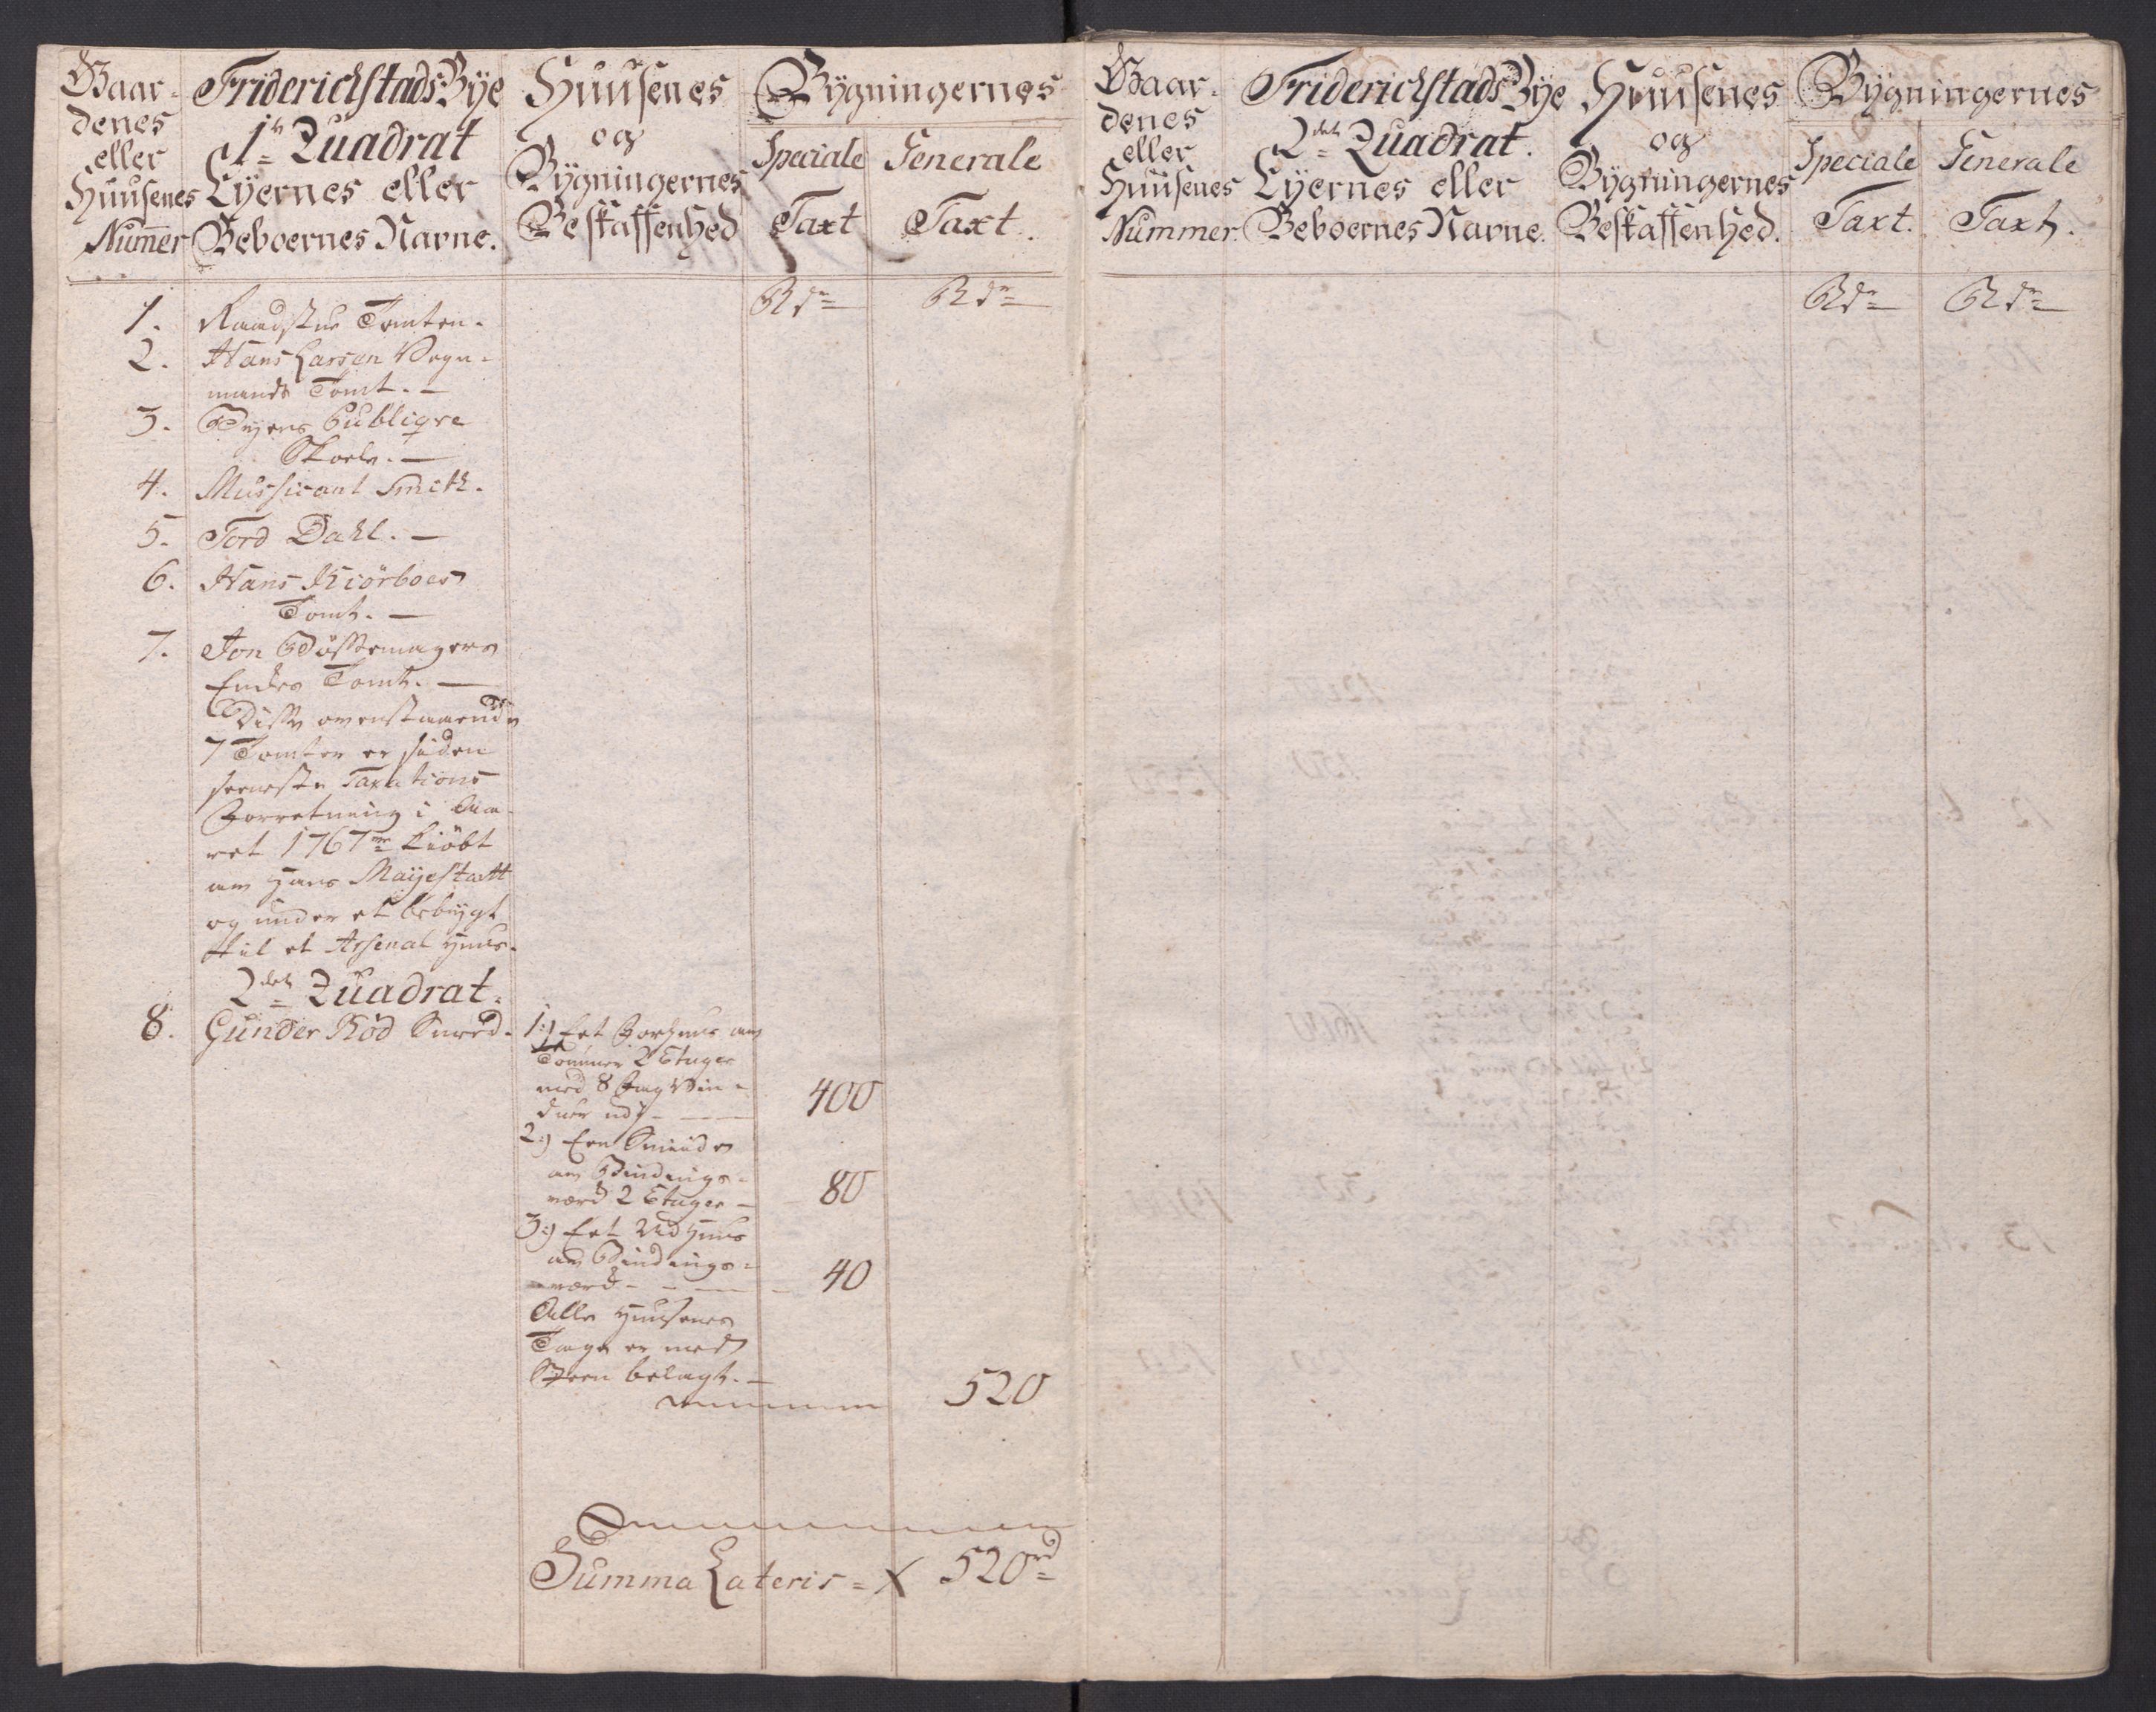 Gaar-
denes
eller
Huusenes
Nummer
Friderichstads Bye
1ste Quadrat
Eyernes eller
Beboernes Navne.
Huusenes
og
Bygningernes
Beskaffenhed
Bygningernes
Speciale
Taxt
Generale
Taxt.
Rdr
Rdr
1. Raadstue Tomten.
2. Hans Larsen Vogn-
mands Tomt. —
3. Byens Publiqve
Skoele. —
4. Mussicant Smith.
5. Tord Dahl. —
6. Hans Kiörboes
Tomt. —
7. Jon Bössemagers
Enkes Tomt. —
Disse ovenstaaende
7 Tomter er siden
seeneste Taxations
Forretning i Aa-
ret 1767 Kiöbt
av Hans Mayestætt
og under et bebygt
til et Arsenal Huus.
2den Quadrat.
8. Gunder Röd Smed.
1:) Eet Forhuus av
Tömmer 2 Etager
med 8 Fag Vin-
duer udj - 400
2:) Een Smidie
av Bindings-
værk 2 Etager - 80
3:) Eet Udhuus
av Bindings-
værk - 40
Alle Huusenes
Tage er med
Steen belagt. —
520
Summa Lateris = 520 rd
Gaar-
denes
eller
Huusenes
Nummer.
Friderichstads Bye
2den Quadrat.
Eyernes eller
Beboernes Navne.
Huusenes
og
Bygningernes
Beskaffenhed.
Bygningernes
Speciale
Taxt.
Generale
Taxt.
Rdr
Rdr